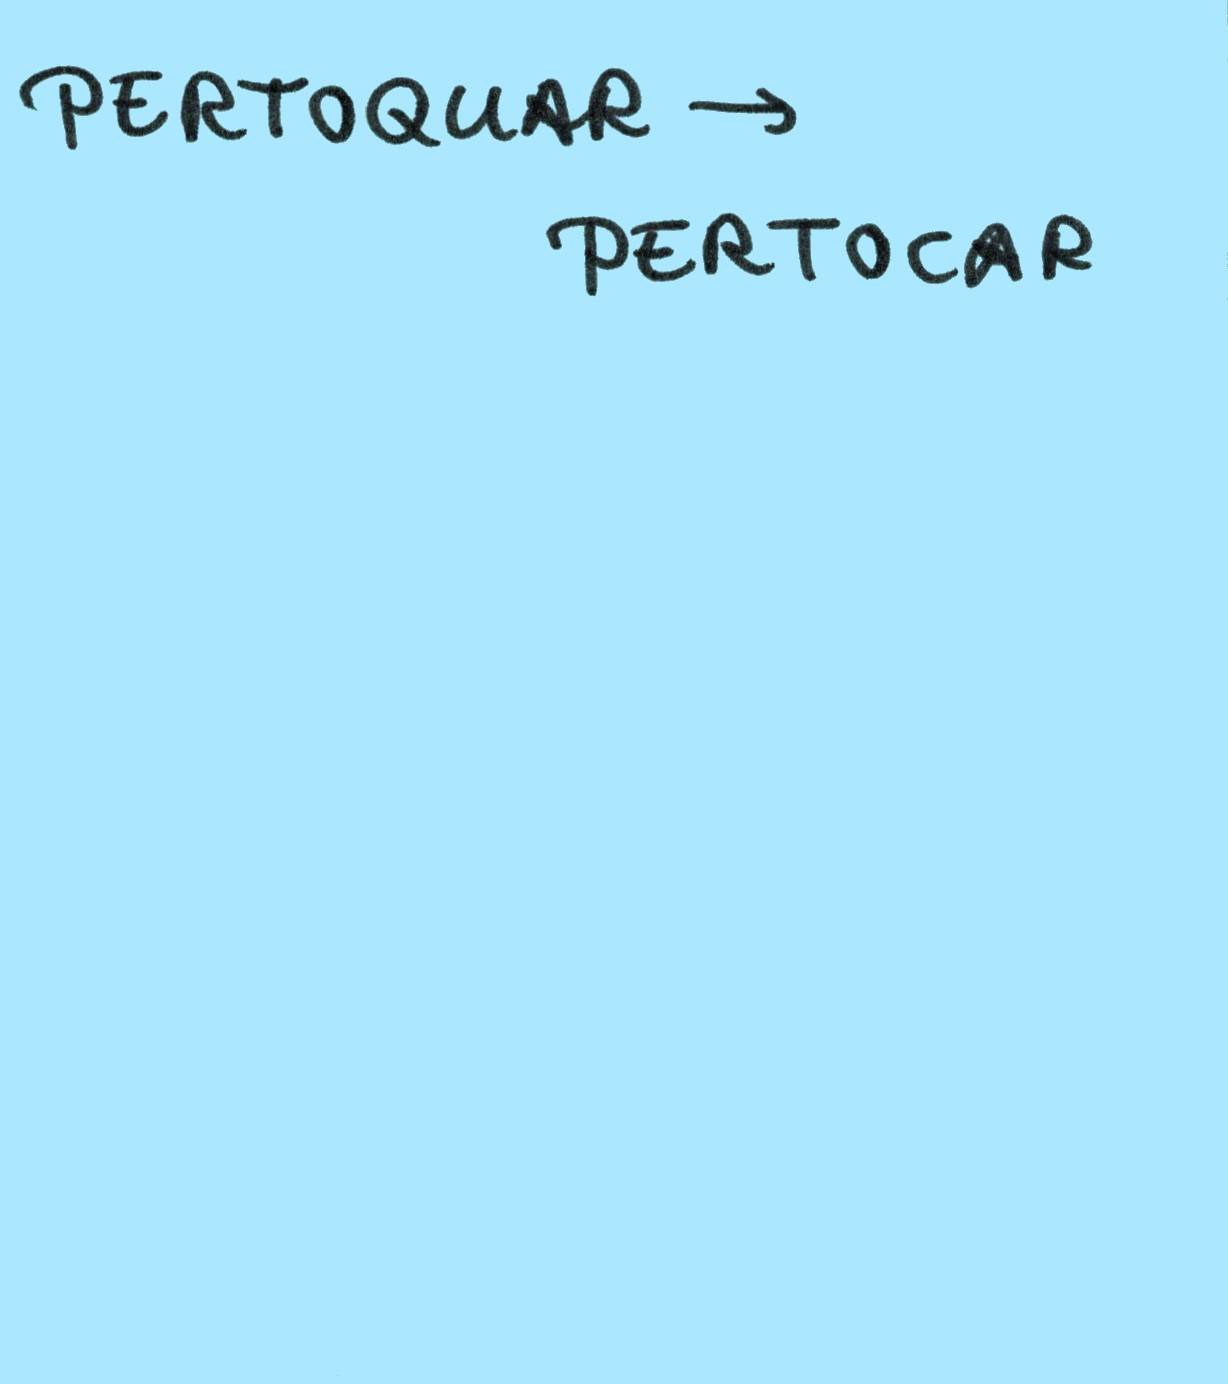 PERTOQUAR →
PERTOCAR